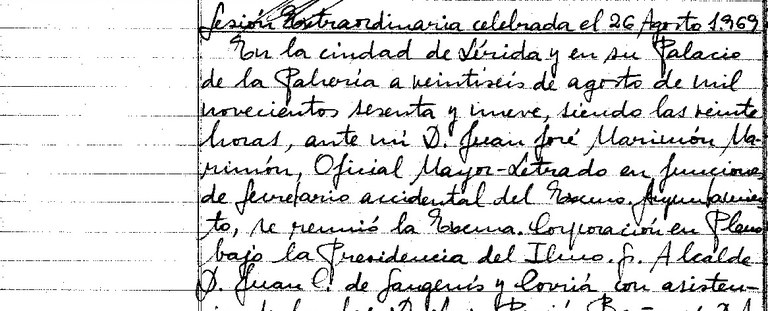 Sesión Extraordinaria celebrada el 26 Agosto 1969
En la ciudad de Lérida y en su Palacio
de la Pahería a veintiseis de agosto de mil
novecientos sesenta y nueve, siendo las veinte
horas, ante mi D. Juan José Marimón Ma-
rimón, Oficial Mayor-Letrado en funciones
de Secretario accidental del Excmo. Ayuntamien-
to, se reunió la Excma. Corporación en Pleno
bajo la Presidencia del Ilmo. Sr. Alcalde
D. Juan C. de Sangenís y Corriá con asisten-